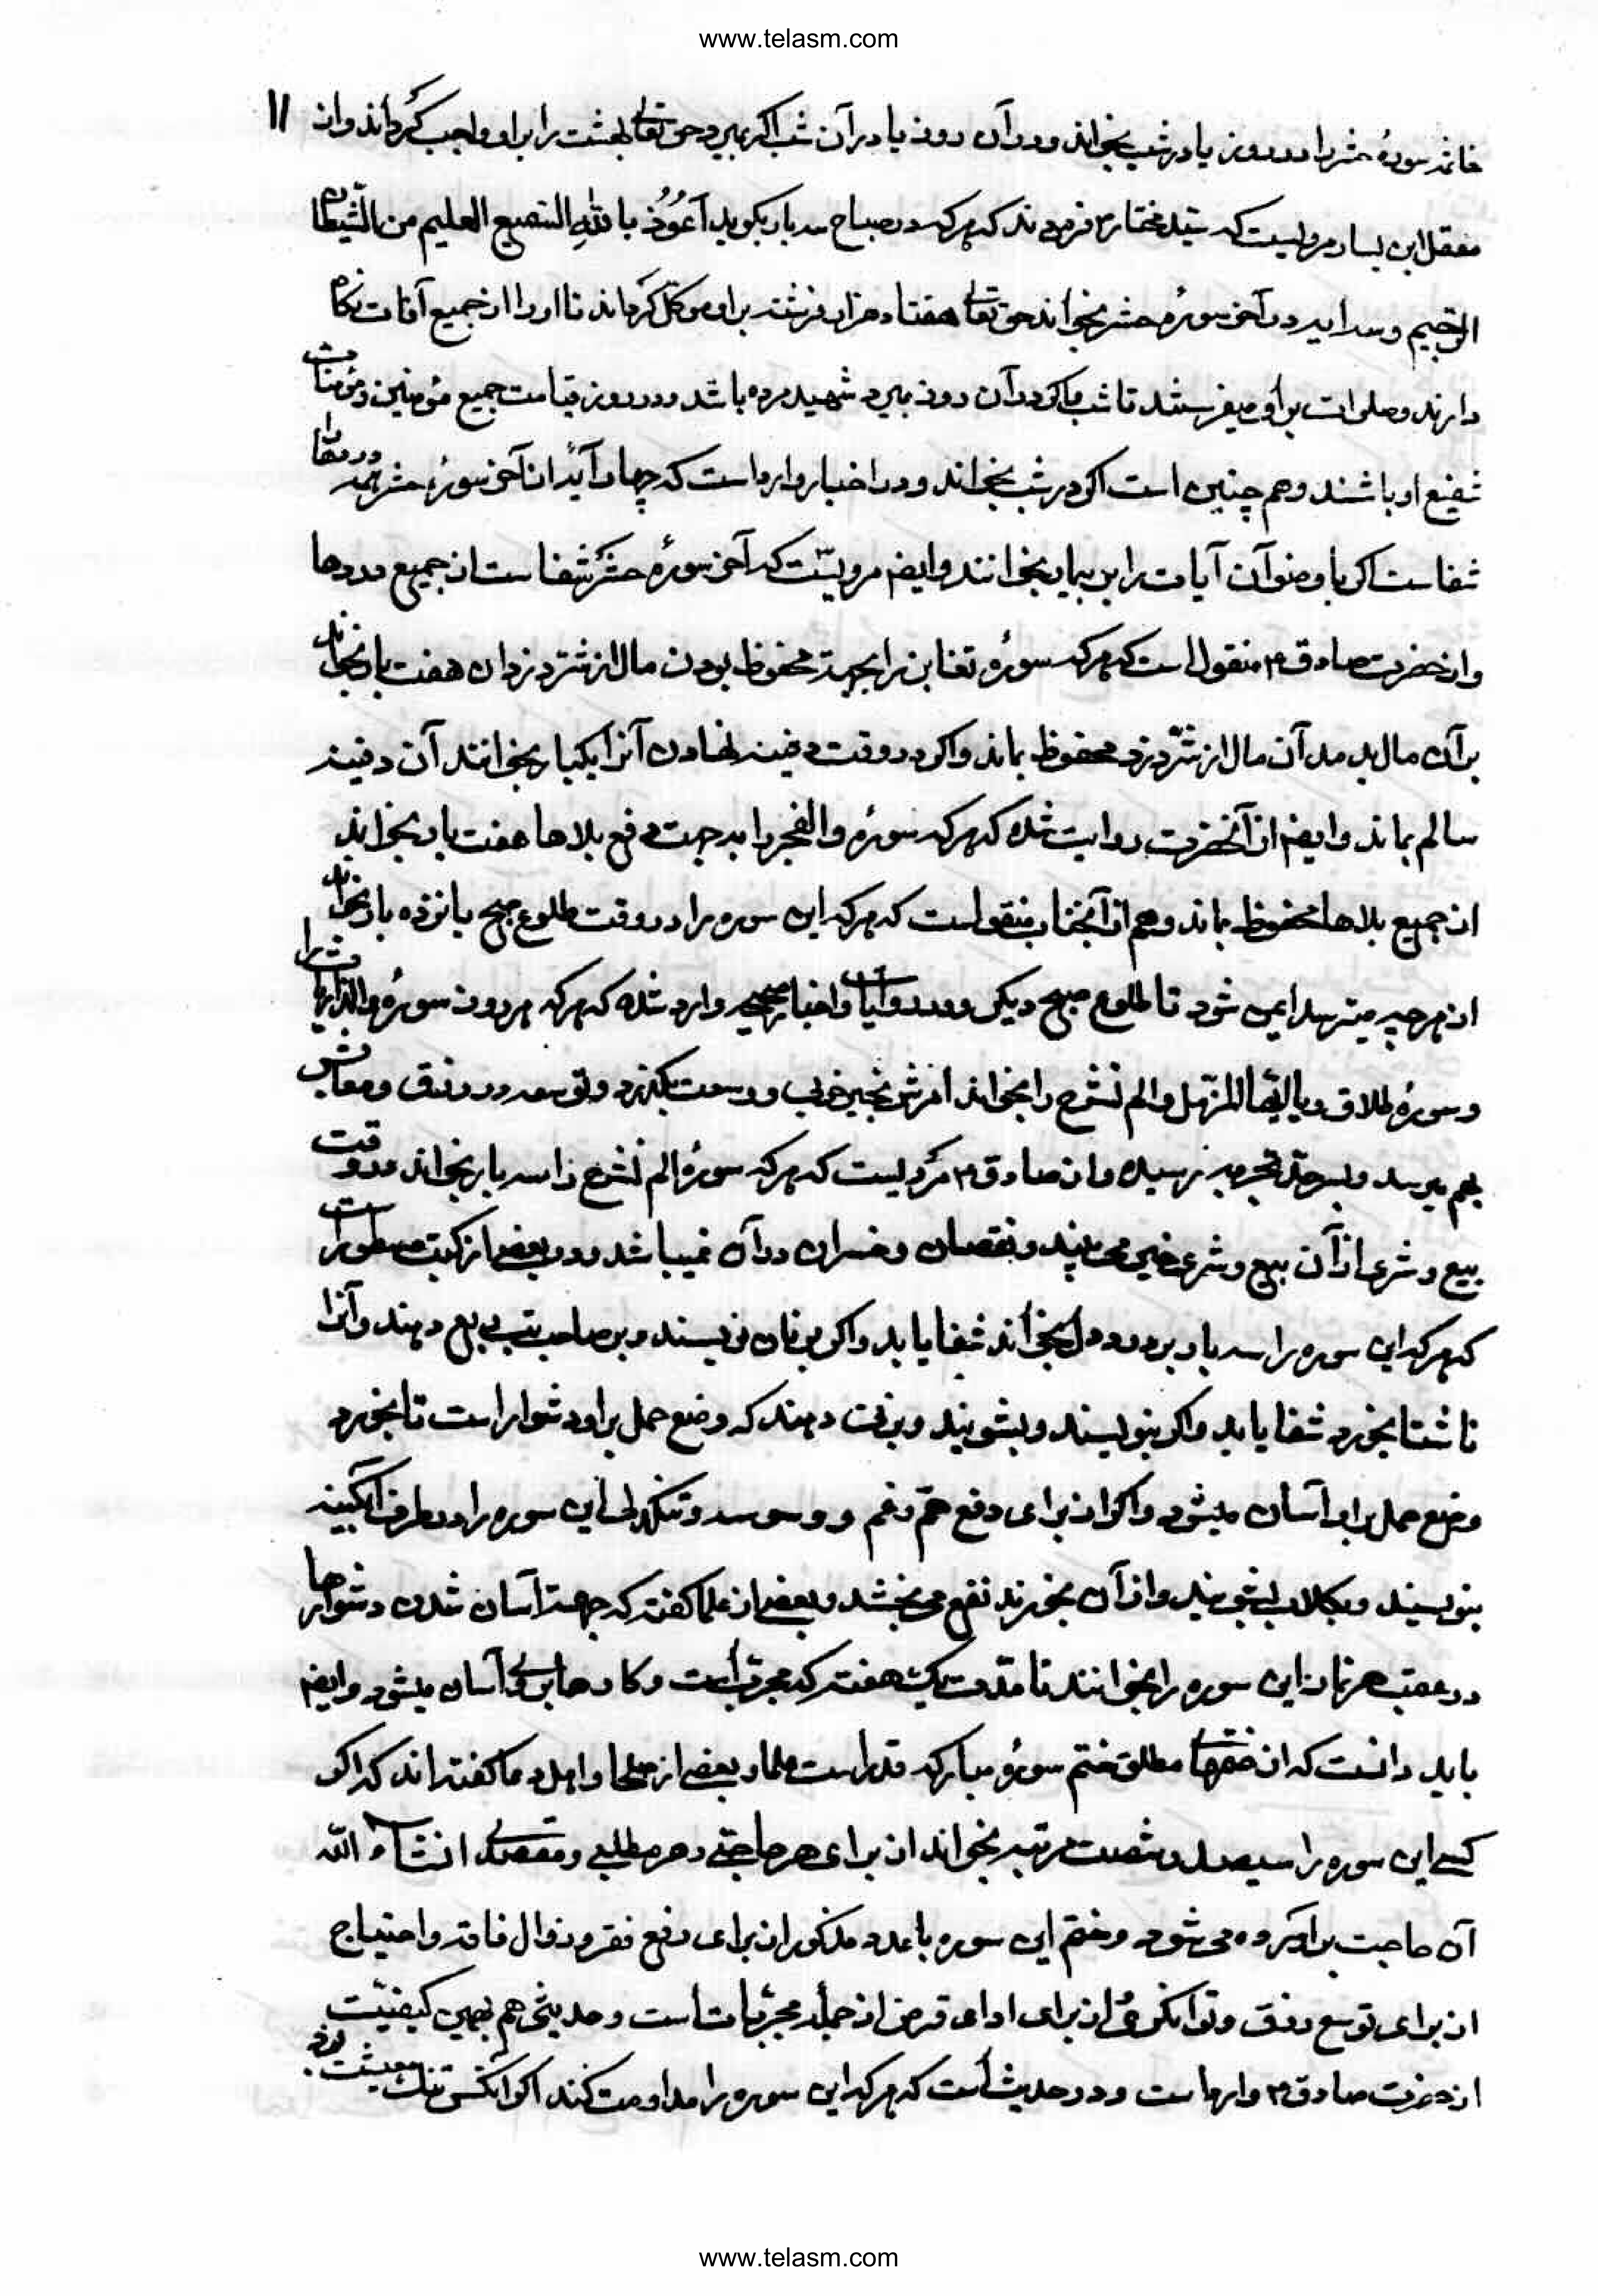 www.telasm.com
خاتمه سورهٔ حشر را در روز یا در شب بخواند و در آن روز یا در آن شب اکر بمیرد حق تعالی بهشت را بر او واجب کرداند و از ۱۱
معقل ابن یسار مرویست که سید مختار فرمودند که هرکه در صباح سه بار بکوید اَعُوُذُ باللهِ السمیع العلیم من الشیطان
الرجیم و سه ایه در آخر سورهٔ حشر بخواند حق تعالی هفتاد هزار فرشته بر او موکل کرداند تا او را از جمیع آفات نکاه
دارند و صلوات بر او میفرستند تا شب و اکر در آن روز بمیرد شهید مرده باشد و در روز قیامت جمیع مؤمنین و مؤمنات
شفیع او باشند و هم چنین است اکر در شب بخواند و در اخبار وارد است که چهار آیه از آخر سورهٔ حشر همه دردها را
شفاست اکر با وضو آن آیات را بر بیمار بخوانند و ایضا مرویست که آخر سورهٔ حشر شفاست از جمیع دردها
و از حضرت صادق ۴ منقول است که هرکه سورهٔ تغابن را بجهة محفوظ بودن مال از شر دزدان هفت بار بخواند
بر آن مال بدمد آن مال از شرّ دزد محفوظ بماند و اکر در وقت دفینه نهادن آنرا یکبار بخوانند آن دفینه
سالم بماند و ایضا از آنحضرت روایت شده که هرکه سورهٔ والفجر را به جهت دفع بلاها هفت بار بخواند
از جمیع بلاها محفوظ بماند و هم از آنجناب منقولست که هرکه این سوره را در وقت طلوع صبح یانزده بار بخواند
از هرچه میترسد ایمن شود تا طلوع صبح دیکر و در روایات و اخبار صحیحه وارد شده که هرکه هر روز سورهٔ والذاریات را
و سورهٔ طلاق و یا ایّها المزمّل و الم نشرح را بخواند بخیر خوبی و وسعت بکذرد و توسعه در رزق و معاش
بهم میرسد و بسر حد تجربه رسیده و از صادق ۴ مرویست که هرکه سورهٔ الم نشرح را سه بار بخواند در وقت
بیع و شری از آن بیع و شری خیر می بیند و نقصان و خسران در آن نمیباشد و در بعضی از کتب مسطور است
که هرکه این سوره را سه بار بر درد دل بخواند شفا یابد و اکر بر نان نویسند و بر صاحب تب ربع دهند و آنرا
ناشتا بخورد شفا یابد و اکر بنویسند و بشویند و بزنی دهند که وضع حمل بر او دشوار است تا بخورد
وضع حمل بر او آسان میشود و اکر از برای دفع همّ و غم و وسوسه و تنکدلی این سوره را در ظرف آبکینه
بنویسند و بکلاب بشویند و از آن بخورند نفع می بخشد و بعضی از علما کفته که جهة آسان شدن دشوارها
در عقب هر نماز این سوره را بخوانند تا مدت یک هفته که مجربست و کارها بر وی آسان میشود و ایضا
باید دانست که از مطلق ختم سورهٔ مبارکه قدر است علما و بعضی از صلحا و اهل دعا کفته اند که اکر
کسی این سوره را سیصد و شصت مرتبه بخواند از برای هر حاجتی و هر مطلبی و مقصدی انشاء الله
آن حاجت برآورده می شود و ختم این سوره با عدد مذکور از برای دفع فقر و زوال فاقه و احتیاج
از برای توسع رزق و توانکری و از برای ادای قرض از جمله مجربات است و حدیثی هم بهمین کیفیّت
از حضرت صادق ۴ وارد است و در حدیث است که هرکه این سوره را مداومت کند اکر آنکس تنک معیشت بود
www.telasm.com